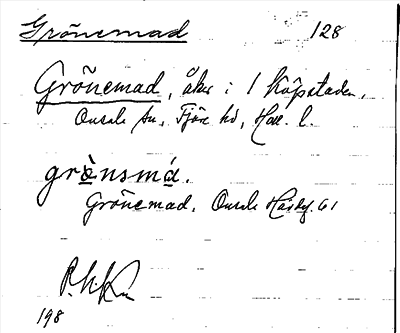 Grönemad 128
Grönemad, åker i 1 Köpstaden,
Onsala sn, Fjäre hd, Hall. l.
grö̀nsmá.
Grönemad. Onsala Hdskf. 61
198